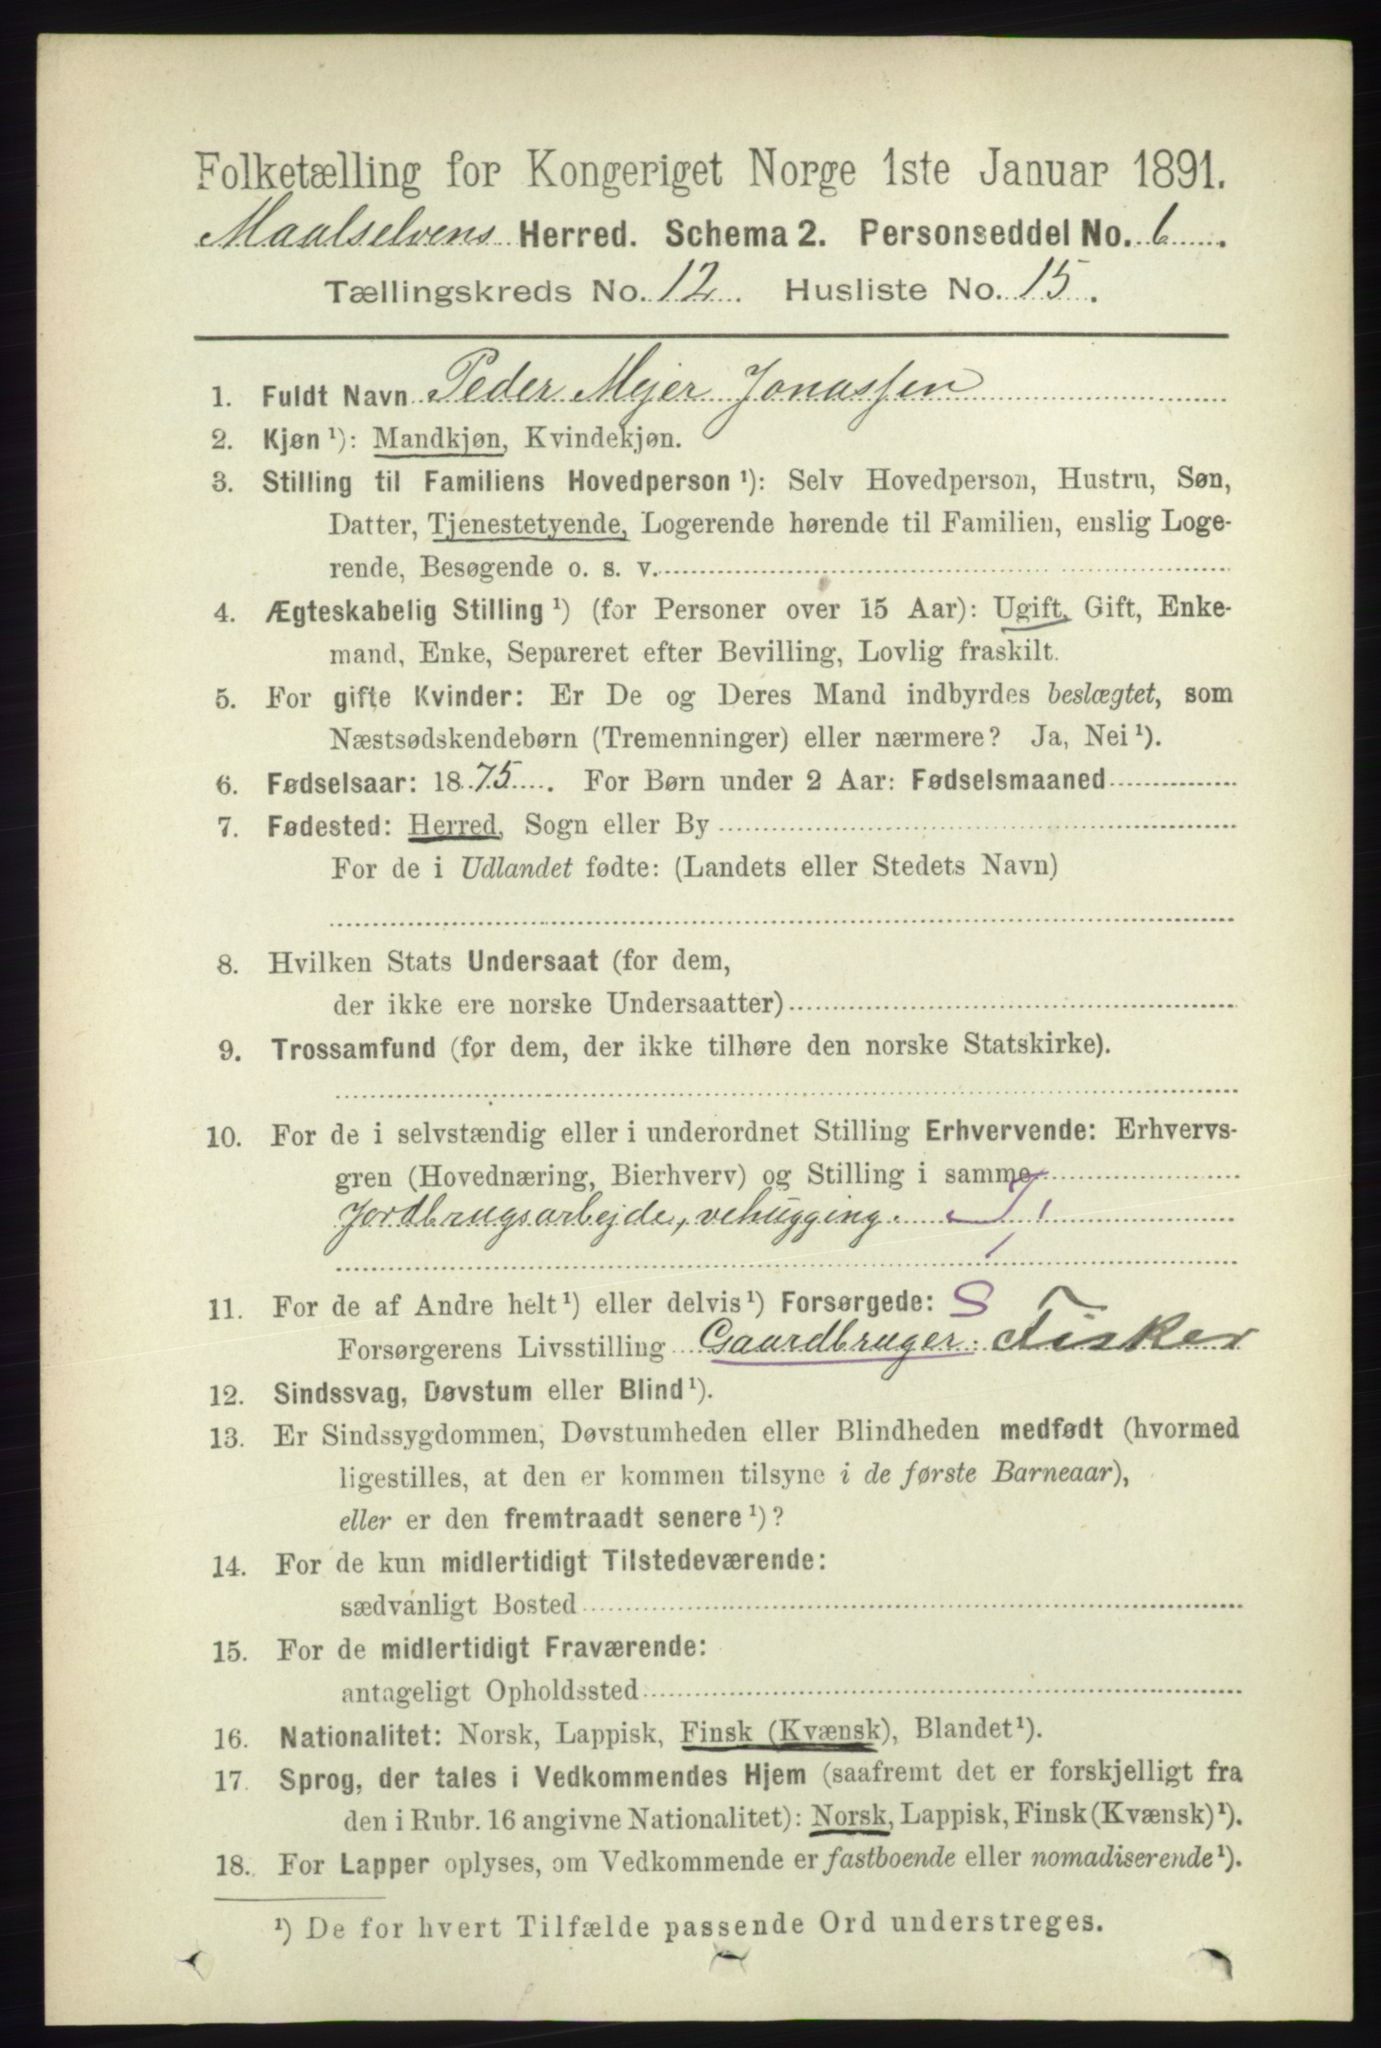 Folketælling for Kongeriget Norge 1ste Januar 1891.
Maalselvens Herred. Schema 2. Personseddel No. 6.
Tællingskreds No. 12. Husliste No. 15.
1. Fuldt Navn Peder Mejer Jonassen
2. Kjøn ¹): Mandkjøn, Kvindekjøn.
3. Stilling til Familiens Hovedperson ¹): Selv Hovedperson, Hustru, Søn,
Datter, Tjenestetyende, Logerende hørende til Familien, enslig Loge-
rende, Besøgende o. s. v.
4. Ægteskabelig Stilling ¹) (for Personer over 15 Aar): Ugift, Gift, Enke-
mand, Enke, Separeret efter Bevilling, Lovlig fraskilt.
5. For gifte Kvinder: Er De og Deres Mand indbyrdes beslægtet, som
Næstsødskendebørn (Tremenninger) eller nærmere? Ja, Nei ¹).
6. Fødselsaar: 1875. For Børn under 2 Aar: Fødselsmaaned
7. Fødested: Herred, Sogn eller By
For de i Udlandet fødte: (Landets eller Stedets Navn)
8. Hvilken Stats Undersaat (for dem,
der ikke ere norske Undersaatter)
9. Trossamfund (for dem, der ikke tilhøre den norske Statskirke).
10. For de i selvstændig eller i underordnet Stilling Erhvervende: Erhvervs-
gren (Hovednæring, Bierhverv) og Stilling i samme
Jordbrugsarbejde, vehugging. J,
11. For de af Andre helt ¹) eller delvis ¹) Forsørgede: S
Forsørgerens Livsstilling Gaardbruger. Fisker
12. Sindssvag, Døvstum eller Blind ¹).
13. Er Sindssygdommen, Døvstumheden eller Blindheden medfødt (hvormed
ligestilles, at den er kommen tilsyne i de første Barneaar),
eller er den fremtraadt senere ¹)?
14. For de kun midlertidigt Tilstedeværende:
sædvanligt Bosted
15. For de midlertidigt Fraværende:
antageligt Opholdssted
16. Nationalitet: Norsk, Lappisk, Finsk (Kvænsk), Blandet ¹).
17. Sprog, der tales i Vedkommendes Hjem (saafremt det er forskjelligt fra
den i Rubr. 16 angivne Nationalitet): Norsk, Lappisk, Finsk (Kvænsk) ¹).
18. For Lapper oplyses, om Vedkommende er fastboende eller nomadiserende ¹).
¹) De for hvert Tilfælde passende Ord understreges.